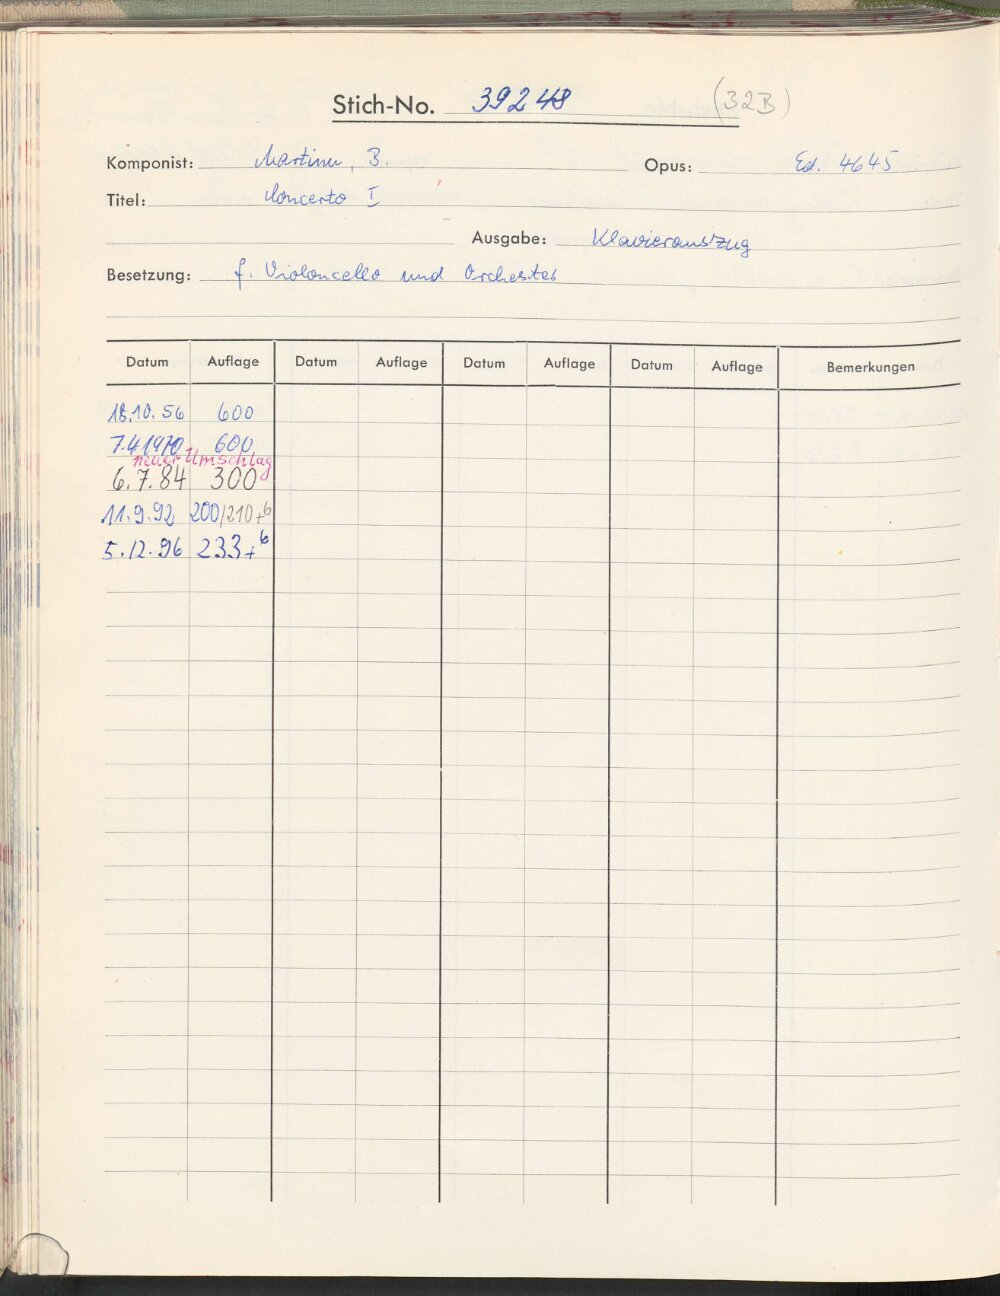 Stich-No. 39248 (32B)
Komponist: Martinu, B. Opus: Ed. 4645
Titel: Concerto I
Ausgabe: Klavierauszug
Besetzung: f. Violoncello und Orchester
Datum Auflage Datum Auflage Datum Auflage Datum Auflage Bemerkungen
18.10.56 600
7.4.1970 600
neuer Umschlag
6.7.84 300
11.9.92 200/210+6
5.12.96 233+6